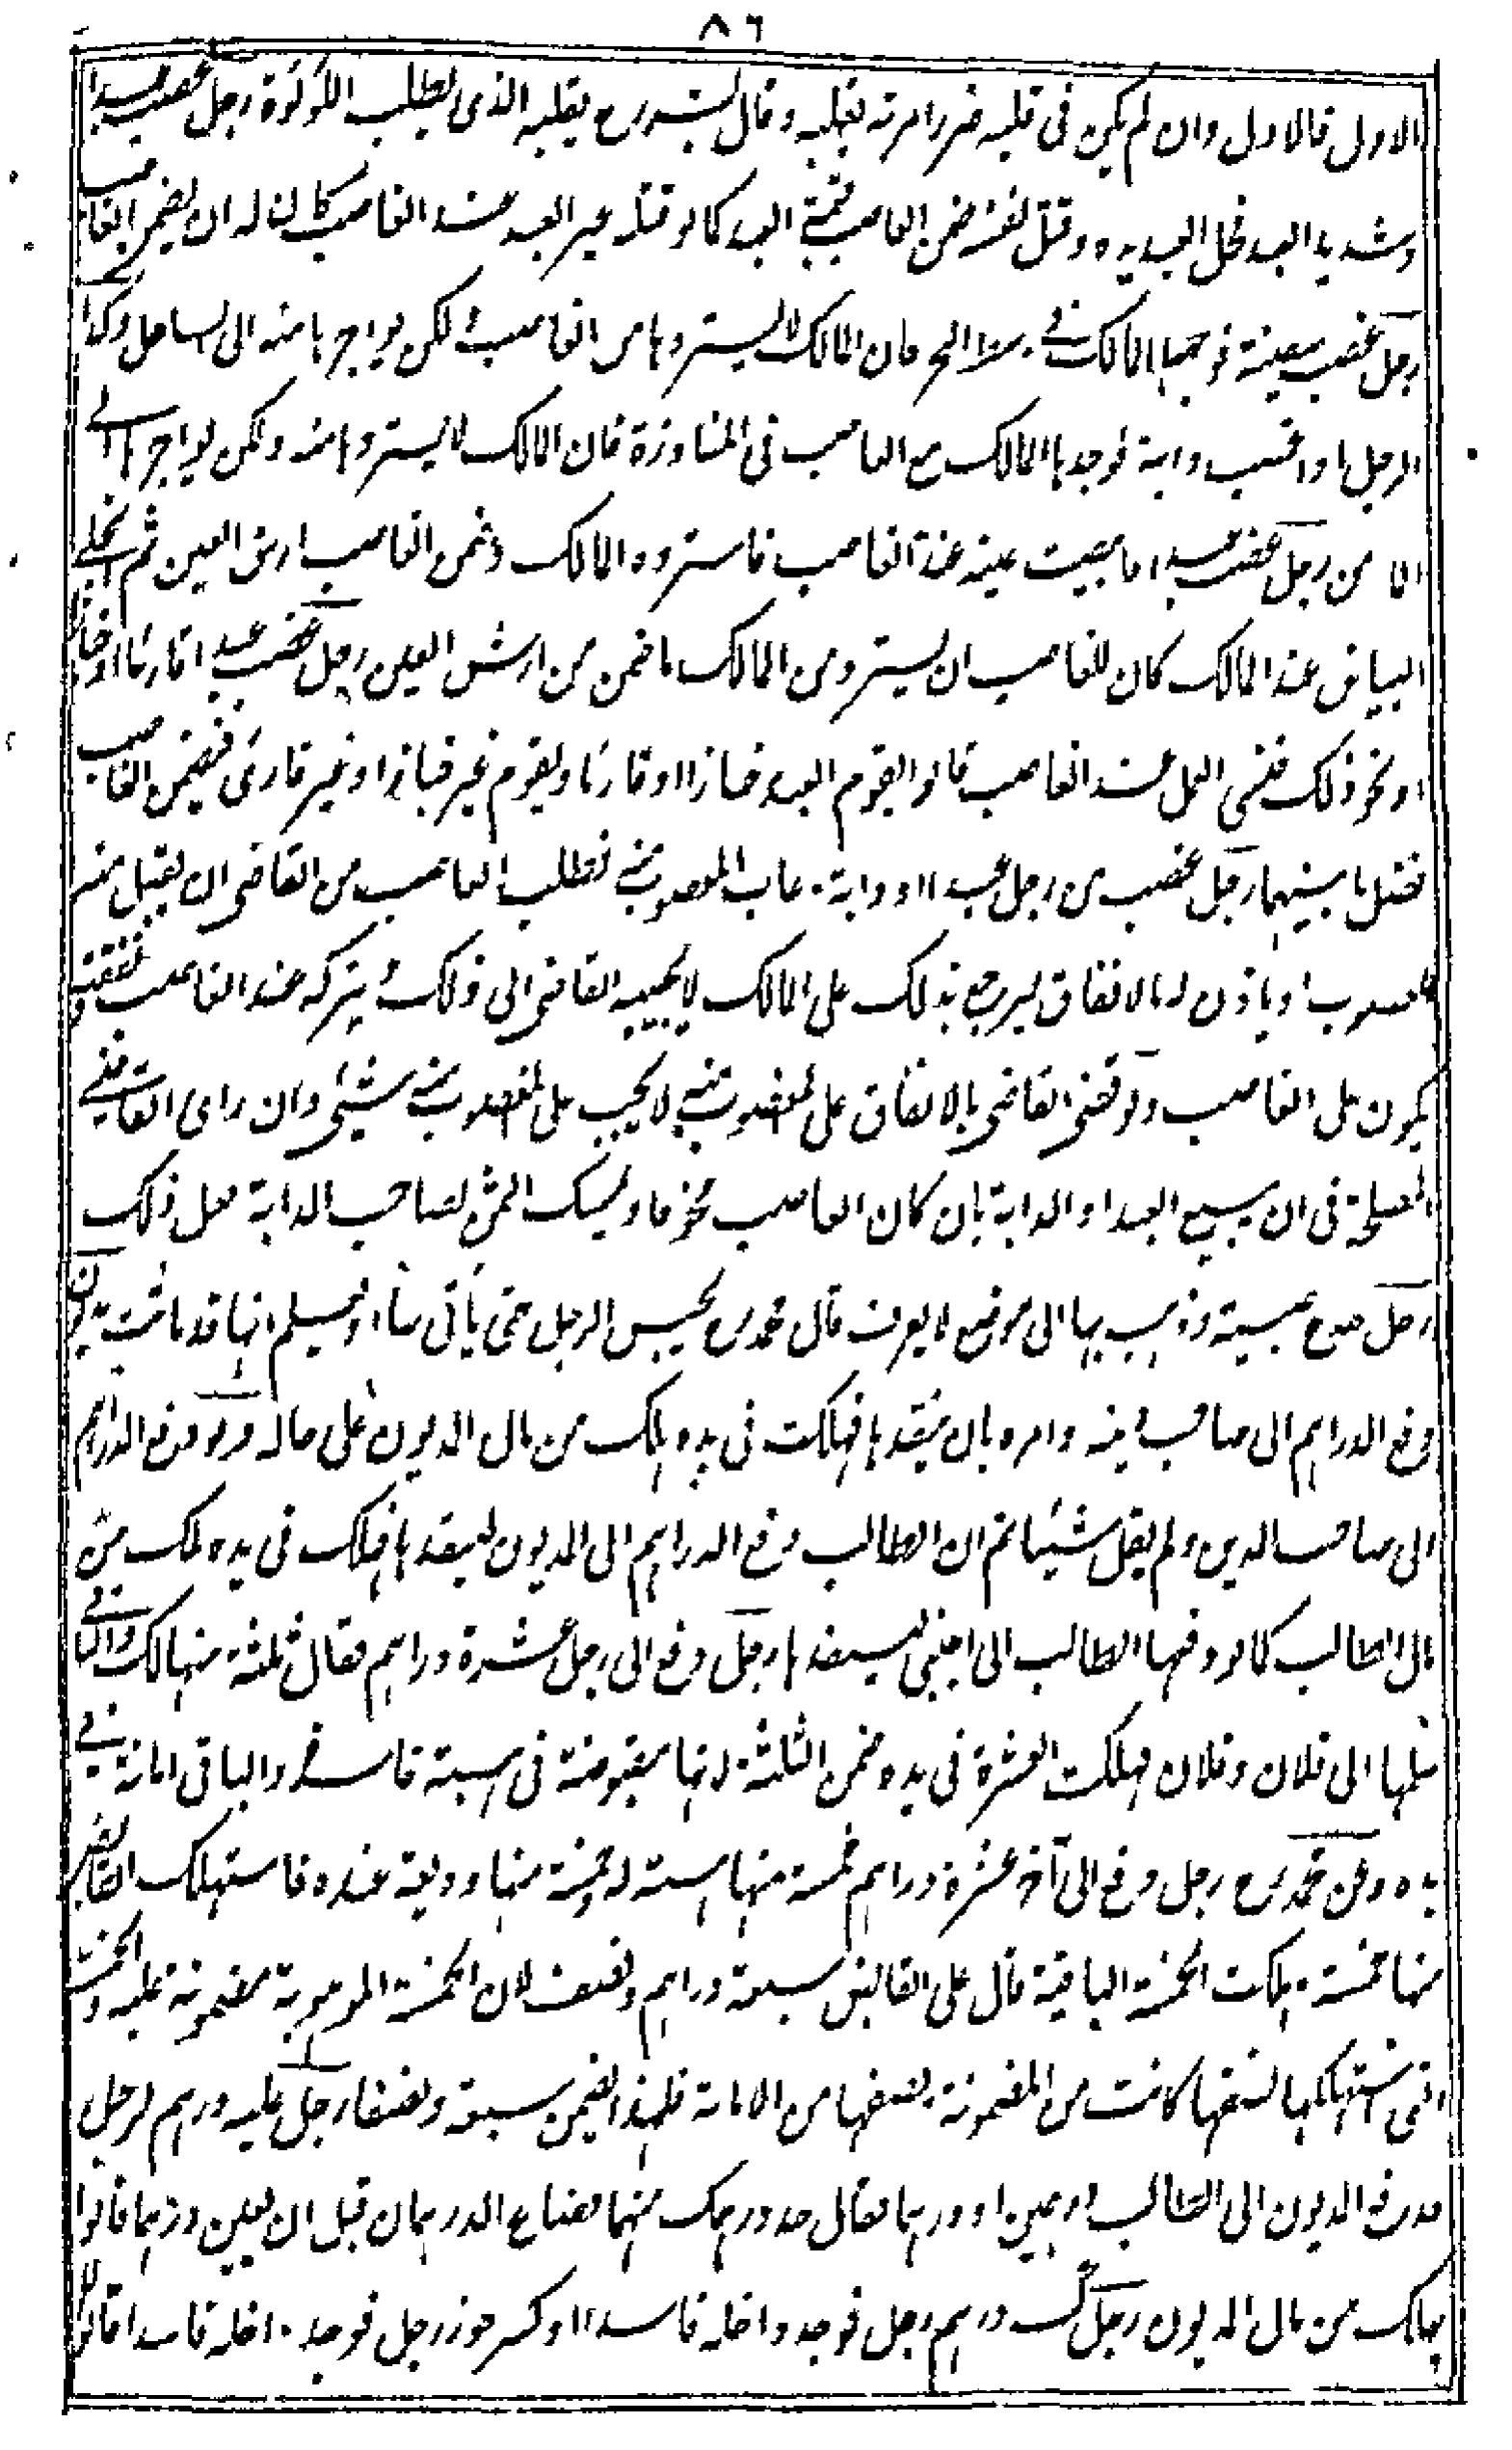 ٨٦
الاول فالاول وان لم يكن في قلبه ضرر امرته بقلبه وقال لبشر رح يقلبه الذى يطلب اللؤلؤة رجل غصب عبدا
وشد يد العبد فحل العبد يده وقتل نفسه ضمن الغاصب قيمة العبد كما لو قتله غير العبد عند الغاصب كان له ان يضمن الغاصب
رجل غصب سفينة فوجدها المالك في البحر فان المالك لا يستردها من الغاصب ولكن يواجرها منه الى الساحل وكذا
الرجل اذا غصب دابة فوجدها المالك مع الغاصب فى المفازة فان المالك لا يستردها منه ولكن يواجرها الى
المامن رجل غصب عبدا فابيضت عينه عند الغاصب فاسترده المالك وضمن الغاصب ارش العين ثم انجلى
البياض عند المالك كان للغاصب ان يسترد من المالك ما ضمن من ارش العين رجل غصب عبدا قارئا او خبازا
او نحو ذلك فنسى العمل عند الغاصب قالوا يقوم العبد خبازا او قارئا ويقوم غير خباز او غير قارئ فيضمن الغاصب
فضل ما بينهما رجل غصب من رجل عبدا او دابة وغاب المغصوب منه فطلب الغاصب من القاضى ان يقبل منه
المغصوب او ياذن له بالانفاق ليرجع بذلك على المالك لا يجيبه القاضى الى ذلك ويتركه عند الغاصب ونفقته
يكون على الغاصب ولو قضى القاضى بالانفاق على المغصوب منه لا يجب على المغصوب منه شئ وان راى القاضى
المصلحة فى ان يبيع العبد او الدابة بان كان الغاصب مخوفا ويمسك الثمن لصاحب الدابة فعل ذلك
رجل خدع صبية وذهب بها الى موضع لا يعرف قال محمد رح يحبس الرجل حتى يأتى بها او يعلم انها قد ماتت مديون
دفع الدراهم الى صاحب دينه وامره بان ينقدها فهلكت فى يده هلك من مال المديون على حاله ولو دفع الدراهم
الى صاحب الدين ولم يقل شيئا ثم ان الطالب دفع الدراهم الى المديون لينقدها فهلك فى يده هلك من
مال الطالب كما لو دفعها الطالب الى اجنبى لينقدها رجل دفع الى رجل عشرة دراهم فقال ثلثة منها لك والباقى
سلمها الى فلان وفلان فهلكت العشرة فى يده ضمن الثلثة لانها مقبوضة فى الهبة فاسدة والباقى امانة فى
يده وعن محمد رح رجل دفع الى آخر عشرة دراهم خمسة منها هبة له وخمسة منها وديعة عنده فاستهلك القابض
منها خمسة وهلكت الخمسة الباقية قال على القابض سبعة دراهم ونصف لان الخمسة الموهوبة مضمونة عليه والخمسة
التى استهلكها نصفها كانت من المضمونة ونصفها من الامانة فلهذا يضمن سبعة ونصفا رجل عليه درهم لرجل
فدفع المديون الى الطالب درهمين او درهما فقال خذ درهمك منهما فضاع الدرهمان قبل ان يعين درهما قالوا
هلك من مال المديون رجل كسر دراهم رجل فوجد داخله فاسدا او كسر جوز رجل فوجد داخله فاسدا قالوا